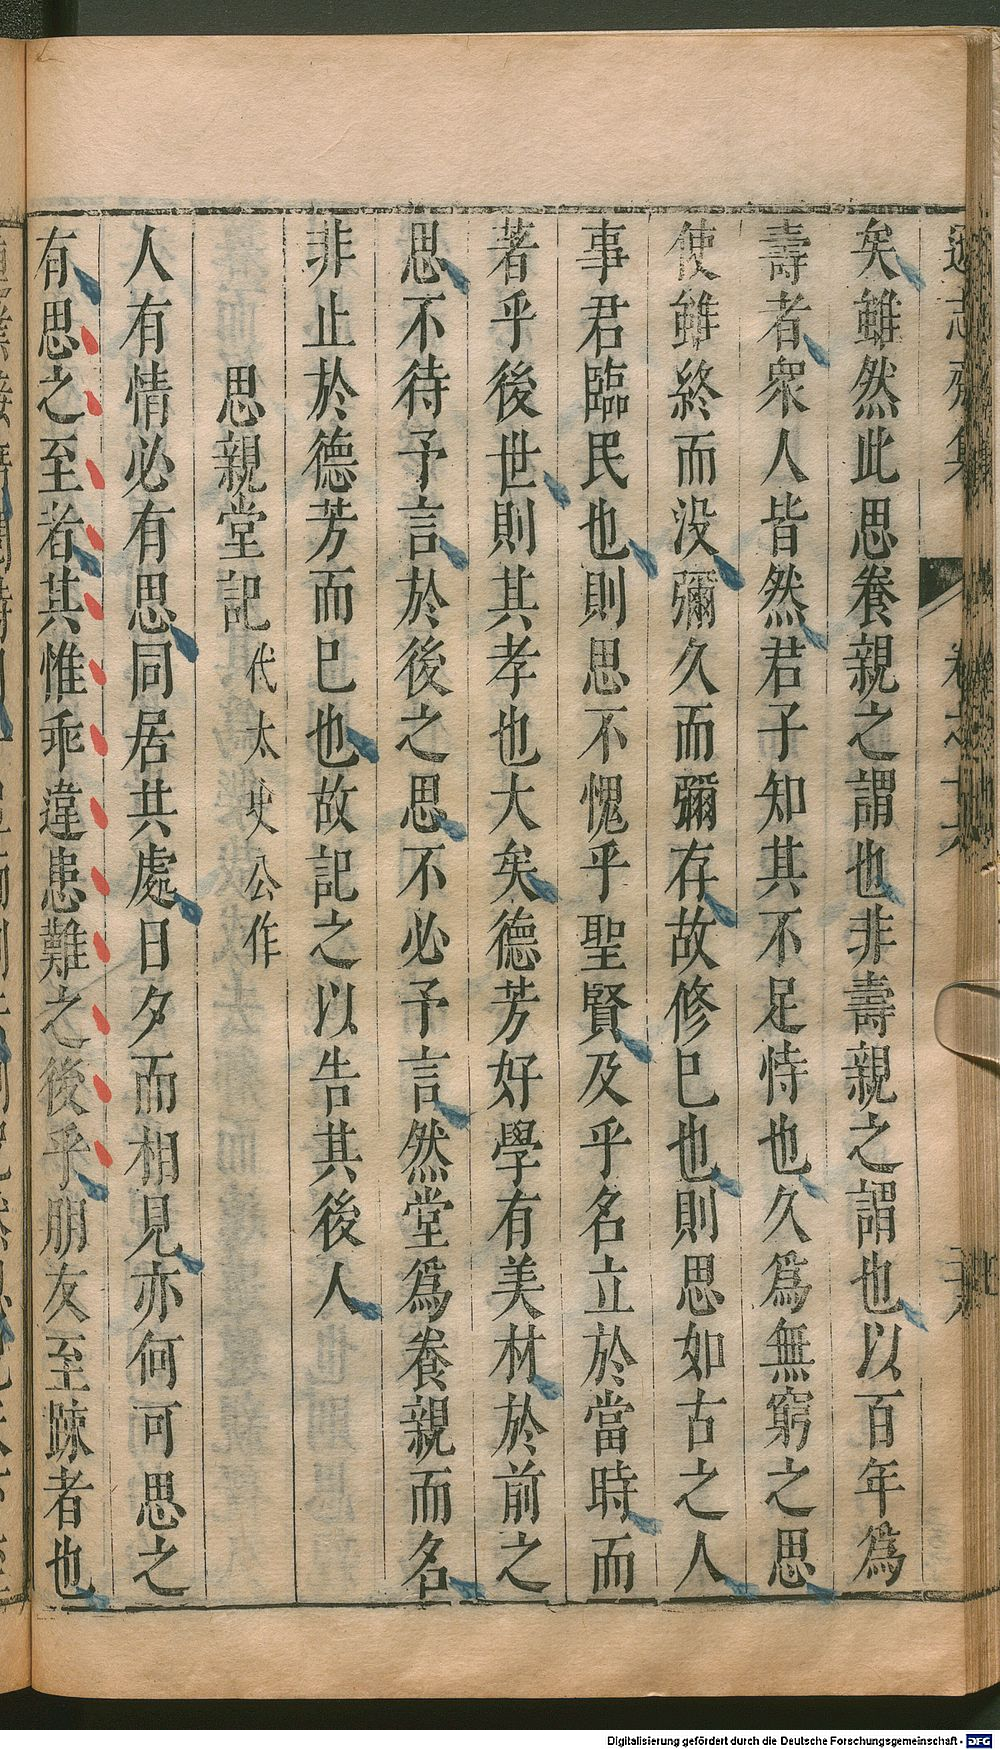 遜志齋集
卷之十六
矣雖然此思養親之謂也非壽親之謂也以百年爲
壽者衆人皆然君子知其不足恃也久爲無窮之思
使雖終而没彌久而彌存故修已也則思如古之人
事君臨民也則思不愧乎聖賢及乎名立於當時而
著乎後世則其孝也大矣德芳好學有美材於前之
思不待予言於後之思不必予言然堂爲養親而名
非止於德芳而已也故記之以告其後人
思親堂記代太史公作
人有情必有思同居共處日夕而相見亦何可思之
有思之至者其惟乖違患難之後乎朋友至踈者也
Digitalisierung gefördert durch die Deutsche Forschungsgemeinschaft - DFG